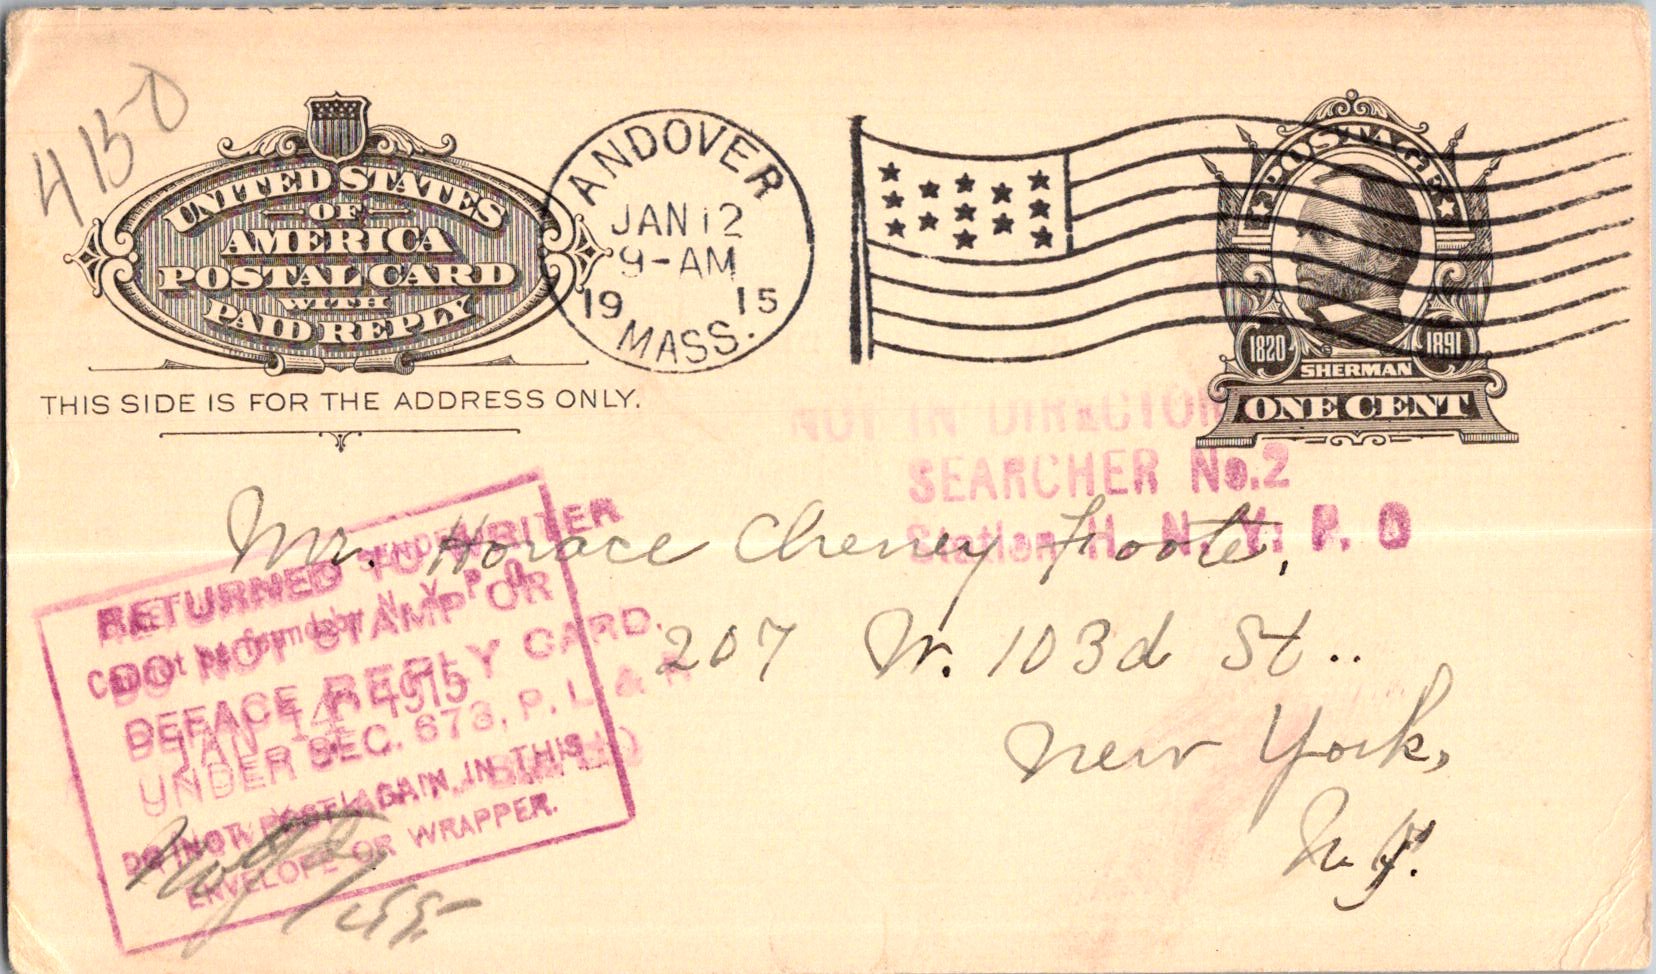 UNITED STATES
OF
AMERICA
POSTAL CARD
WITH
PAID REPLY
THIS SIDE IS FOR THE ADDRESS ONLY.
ANDOVER
JAN 12
9-AM
19 15
MASS.
POSTAGE
1820 1891
SHERMAN
ONE CENT
NOT IN DIRECTOR
SEARCHER No.2
Station H. N. Y. P. O
Mr. Horace Cheney Foote,
207 W. 103d St..
New York,
N.Y.
RETURNED TO WRITER
DO NOT STAMP OR
DEFACE REPLY CARD.
UNDER SEC. 673, P. L. & R
SENDER
Cannot be found N. Y. P. O.
JAN 14 1915
DO NOT POST AGAIN IN THIS
ENVELOPE OR WRAPPER.